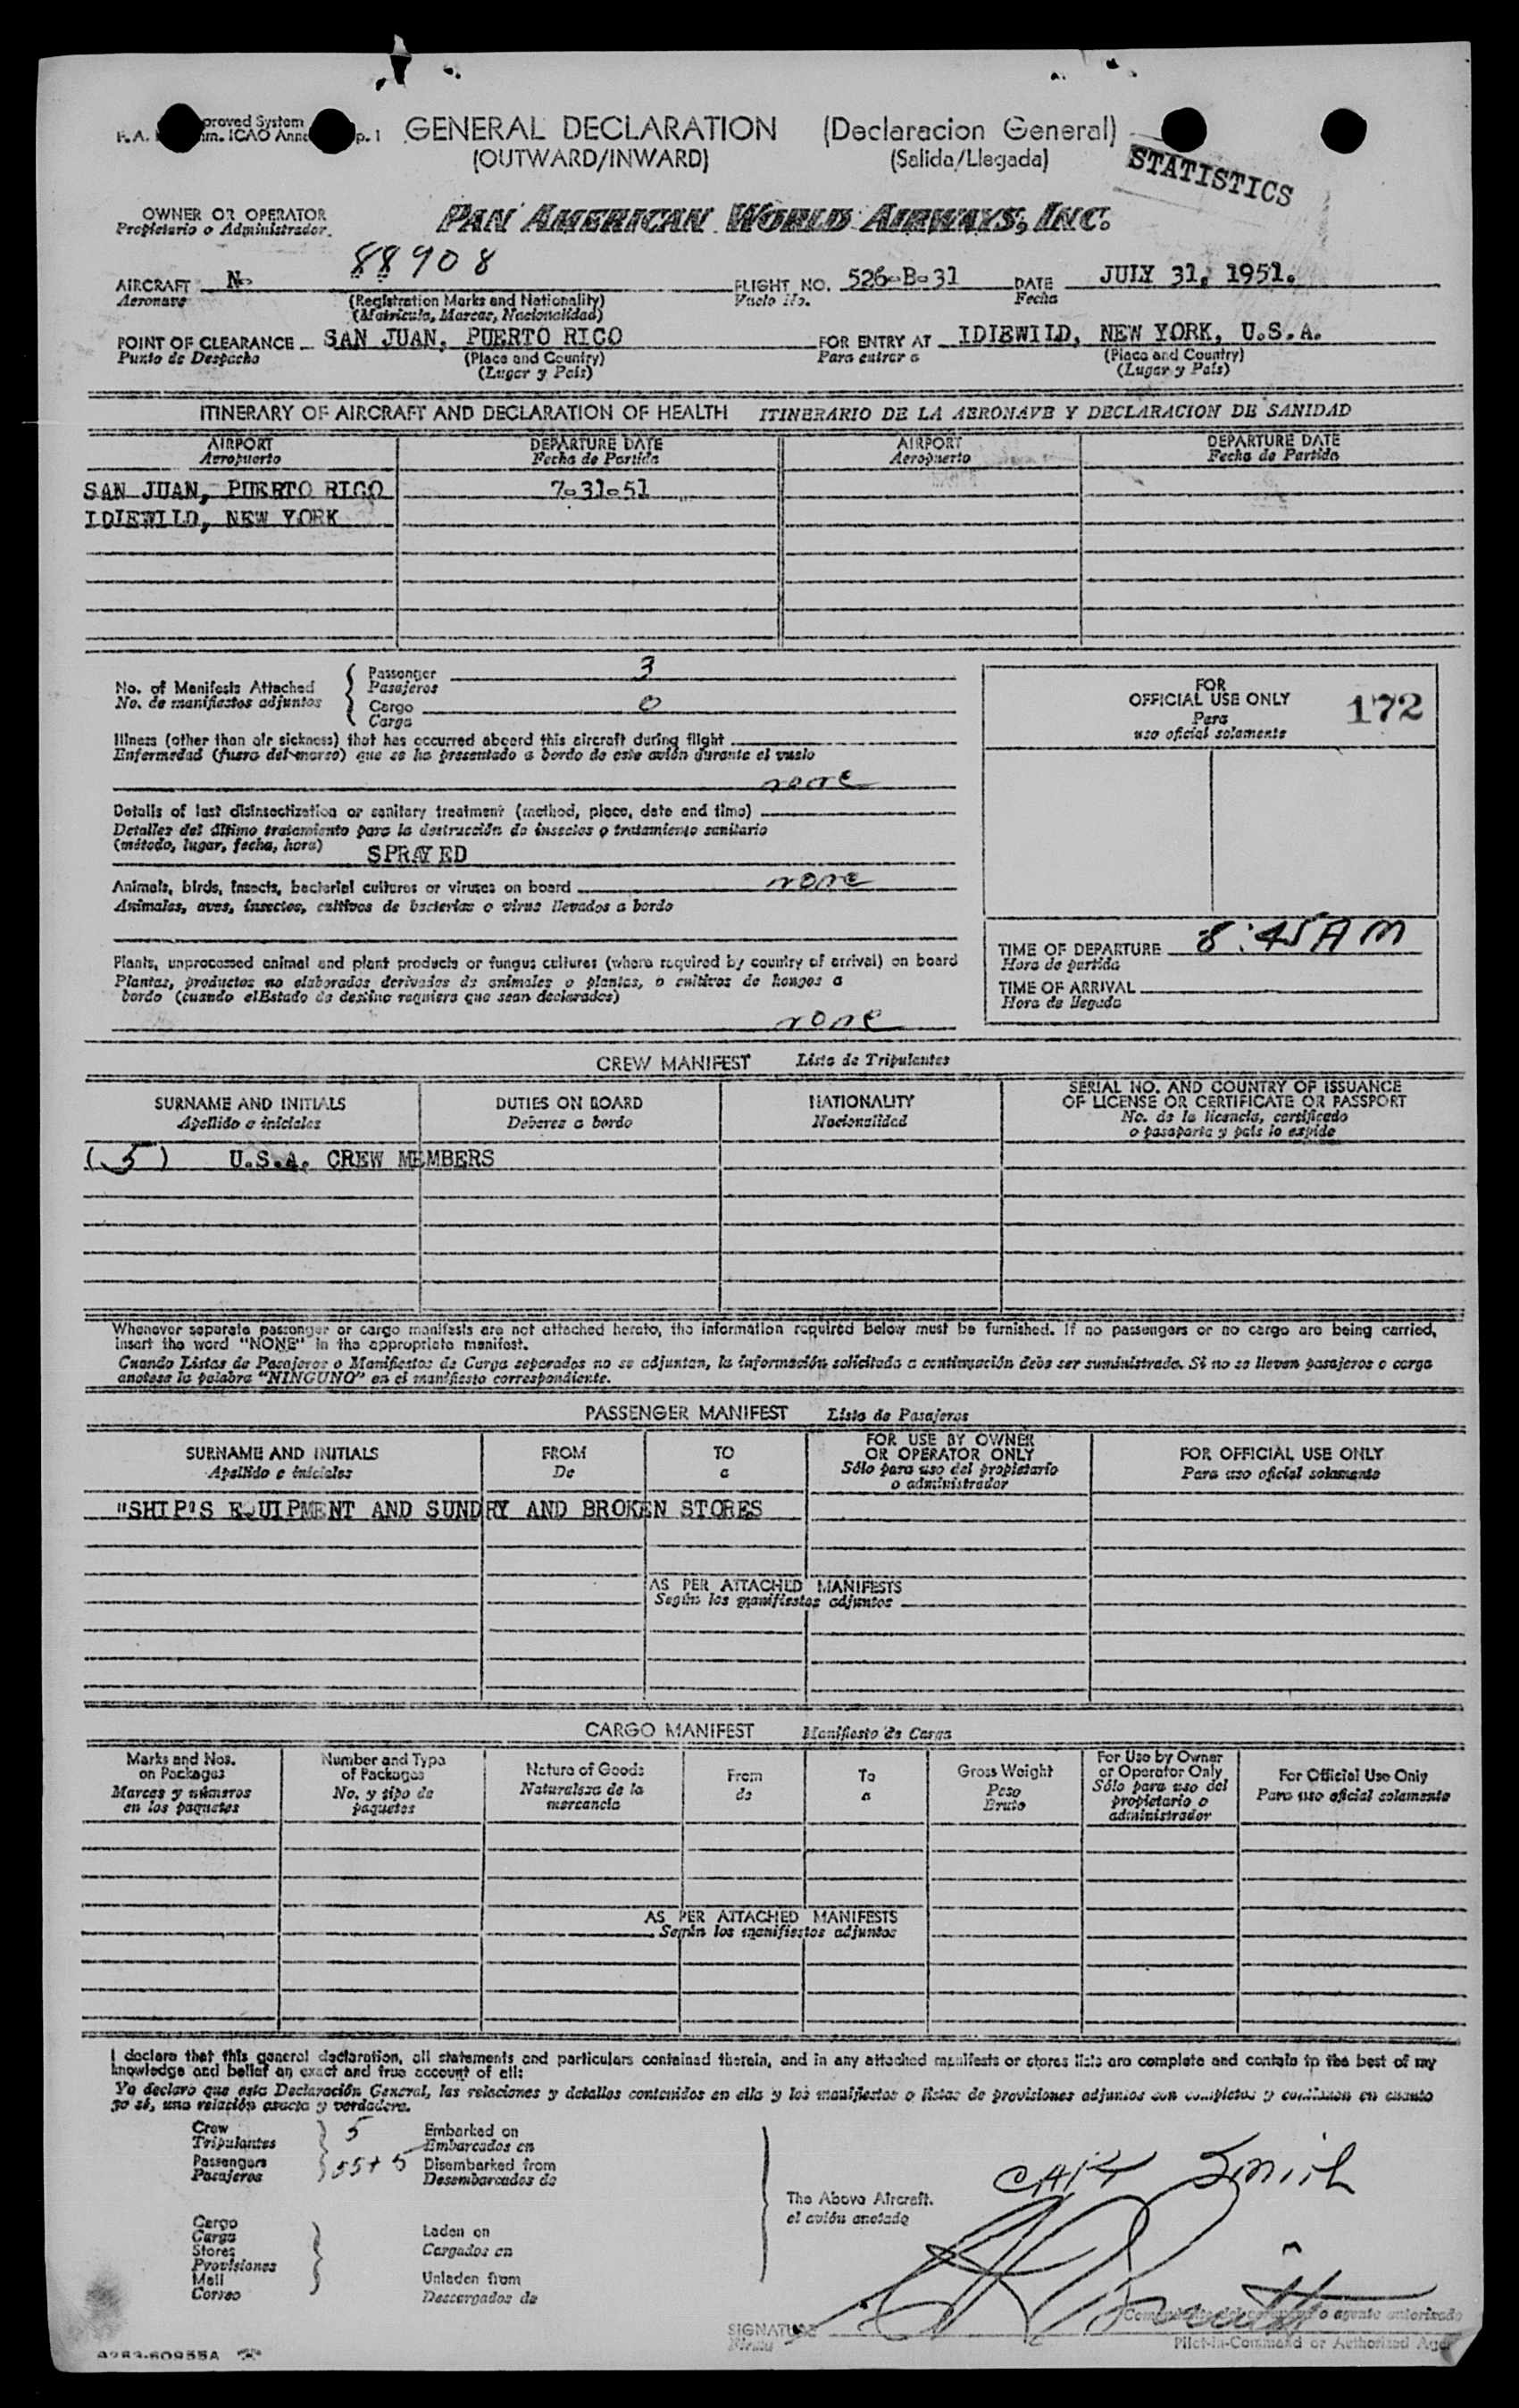 proved System
GENERAL DECLARATION (Declaracion General)
(OUTWARD/INWARD) (Salida/Llegada)
STATISTICS
OWNER OR OPERATOR
Propietario o Administrador.
PAN AMERICAN WORLD AIRWAYS, INC.
88908
AIRCRAFT N- FLIGHT NO. 526-B-31 DATE JULY 31, 1951.
Aeronave (Registration Marks and Nationality) Vuelo No. Fecha
(Matricula, Marcas, Nacionalidad)
POINT OF CLEARANCE SAN JUAN, PUERTO RICO FOR ENTRY AT IDLEWILD, NEW YORK, U.S.A.
Punto de Despacho (Place and Country) Para entrar a (Place and Country)
(Lugar y Pais) (Lugar y Pais)
ITINERARY OF AIRCRAFT AND DECLARATION OF HEALTH ITINERARIO DE LA AERONAVE Y DECLARACION DE SANIDAD
AIRPORT DEPARTURE DATE AIRPORT DEPARTURE DATE
Aeropuerto Fecha de Partida Aeropuerto Fecha de Partida
SAN JUAN, PUERTO RICO 7-31-51
IDLEWILD, NEW YORK
No. of Manifests Attached
No. de manifiestos adjuntos
Passenger 3
Pasajeros
Cargo 0
Carga
FOR
OFFICIAL USE ONLY 172
Para
uso oficial solamente
Illness (other than air sickness) that has occurred aboard this aircraft during flight
Enfermedad (fuera del mareo) que se ha presentado a bordo de este avión durante el vuelo
none
Details of last disinsectization or sanitary treatment (method, place, date and time)
Detalles del último tratamiento para la destrucción de insectos o tratamiento sanitario
(método, lugar, fecha, hora) SPRAYED
Animals, birds, insects, bacterial cultures or viruses on board none
Animales, aves, insectos, cultivos de bacterias o virus llevados a bordo
TIME OF DEPARTURE 8:45 AM
Hora de partida
TIME OF ARRIVAL
Hora de llegada
Plants, unprocessed animal and plant products or fungus cultures (where required by country of arrival) on board
Plantas, productos no elaborados derivados de animales o plantas, o cultivos de hongos a
bordo (cuando elEstado de destino requiera que sean declarados)
none
CREW MANIFEST Lista de Tripulantes
SURNAME AND INITIALS DUTIES ON BOARD NATIONALITY SERIAL NO. AND COUNTRY OF ISSUANCE
OF LICENSE OR CERTIFICATE OR PASSPORT
Apellido e iniciales Deberes a bordo Nacionalidad No. de la licencia, certificado
o pasaporte y pais lo expide
(5) U.S.A. CREW MEMBERS
Whenever separate passenger or cargo manifests are not attached hereto, the information required below must be furnished. If no passengers or no cargo are being carried,
insert the word "NONE" in the appropriate manifest.
Cuando Listas de Pasajeros o Manifiestos de Carga separados no se adjuntan, la información solicitada a continuación debe ser suministrada. Si no se llevan pasajeros o carga
anotese la palabra "NINGUNO" en el manifiesto correspondiente.
PASSENGER MANIFEST Lista de Pasajeros
SURNAME AND INITIALS FROM TO FOR USE BY OWNER
OR OPERATOR ONLY FOR OFFICIAL USE ONLY
Apellido e iniciales De a Sólo para uso del propietario
o administrador Para uso oficial solamente
"SHIP'S EQUIPMENT AND SUNDRY AND BROKEN STORES
AS PER ATTACHED MANIFESTS
Según los manifiestos adjuntos
CARGO MANIFEST Manifiesto de Carga
Marks and Nos.
on Packages
Marcas y números
en los paquetes
Number and Type
of Packages
No. y tipo de
paquetes
Nature of Goods
Naturaleza de la
mercancia
From
de
To
a
Gross Weight
Peso
Bruto
For Use by Owner
or Operator Only
Sólo para uso del
propietario o
administrador
For Official Use Only
Para uso oficial solamente
AS PER ATTACHED MANIFESTS
Según los manifiestos adjuntos
I declare that this general declaration, all statements and particulars contained therein, and in any attached manifests or stores lists are complete and contain to the best of my
knowledge and belief an exact and true account of all:
Yo declaro que esta Declaración General, las relaciones y detalles contenidos en ella y los manifiestos o listas de provisiones adjuntos son completos y contienen en cuanto
yo sé, una relación exacta y verdadera.
Crew 5 Embarked on
Tripulantes Embarcados en
Passengers 55+5 Disembarked from
Pasajeros Desembarcados de
The Above Aircraft.
el avión anotado
CAPT Smith
Cargo
Carga
Stores
Provisiones
Mail
Correo
Laden on
Cargados en
Unladen from
Descargados de
SIGNATURE
Firma
o agente autorizado
Pilot-in-Command or Authorized